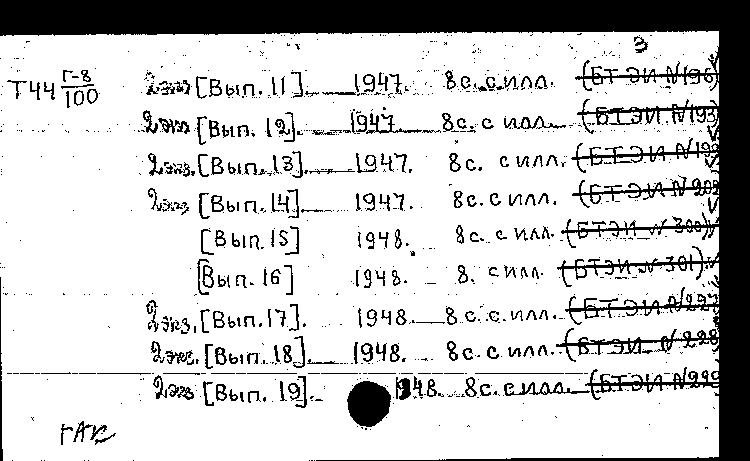 3
Т44 Г-8/100 2экз [Вып. 11]. 1947. 8 с. с илл. (БТЭИ N196)
2экз [Вып. 12]. 1947 8 с. с илл. (БТЭИ N193)
2экз. [Вып. 13]. 1947. 8 с. с илл. (БТЭИ
2экз [Вып. 14]. 1947. 8 с. с илл. (БТЭИ
[Вып. 15] 1948. 8 с. с илл. (БТЭИ N 300)
[Вып. 16] 1948. 8. с илл. (БТЭИ N 301)
2экз. [Вып. 17]. 1948. 8 с. с илл. (БТЭИ N227
2экз. [Вып. 18]. 1948. 8 с. с илл. (БТЭИ N 228
2экз [Вып. 19]. 948. 8 с. с илл. (БТЭИ